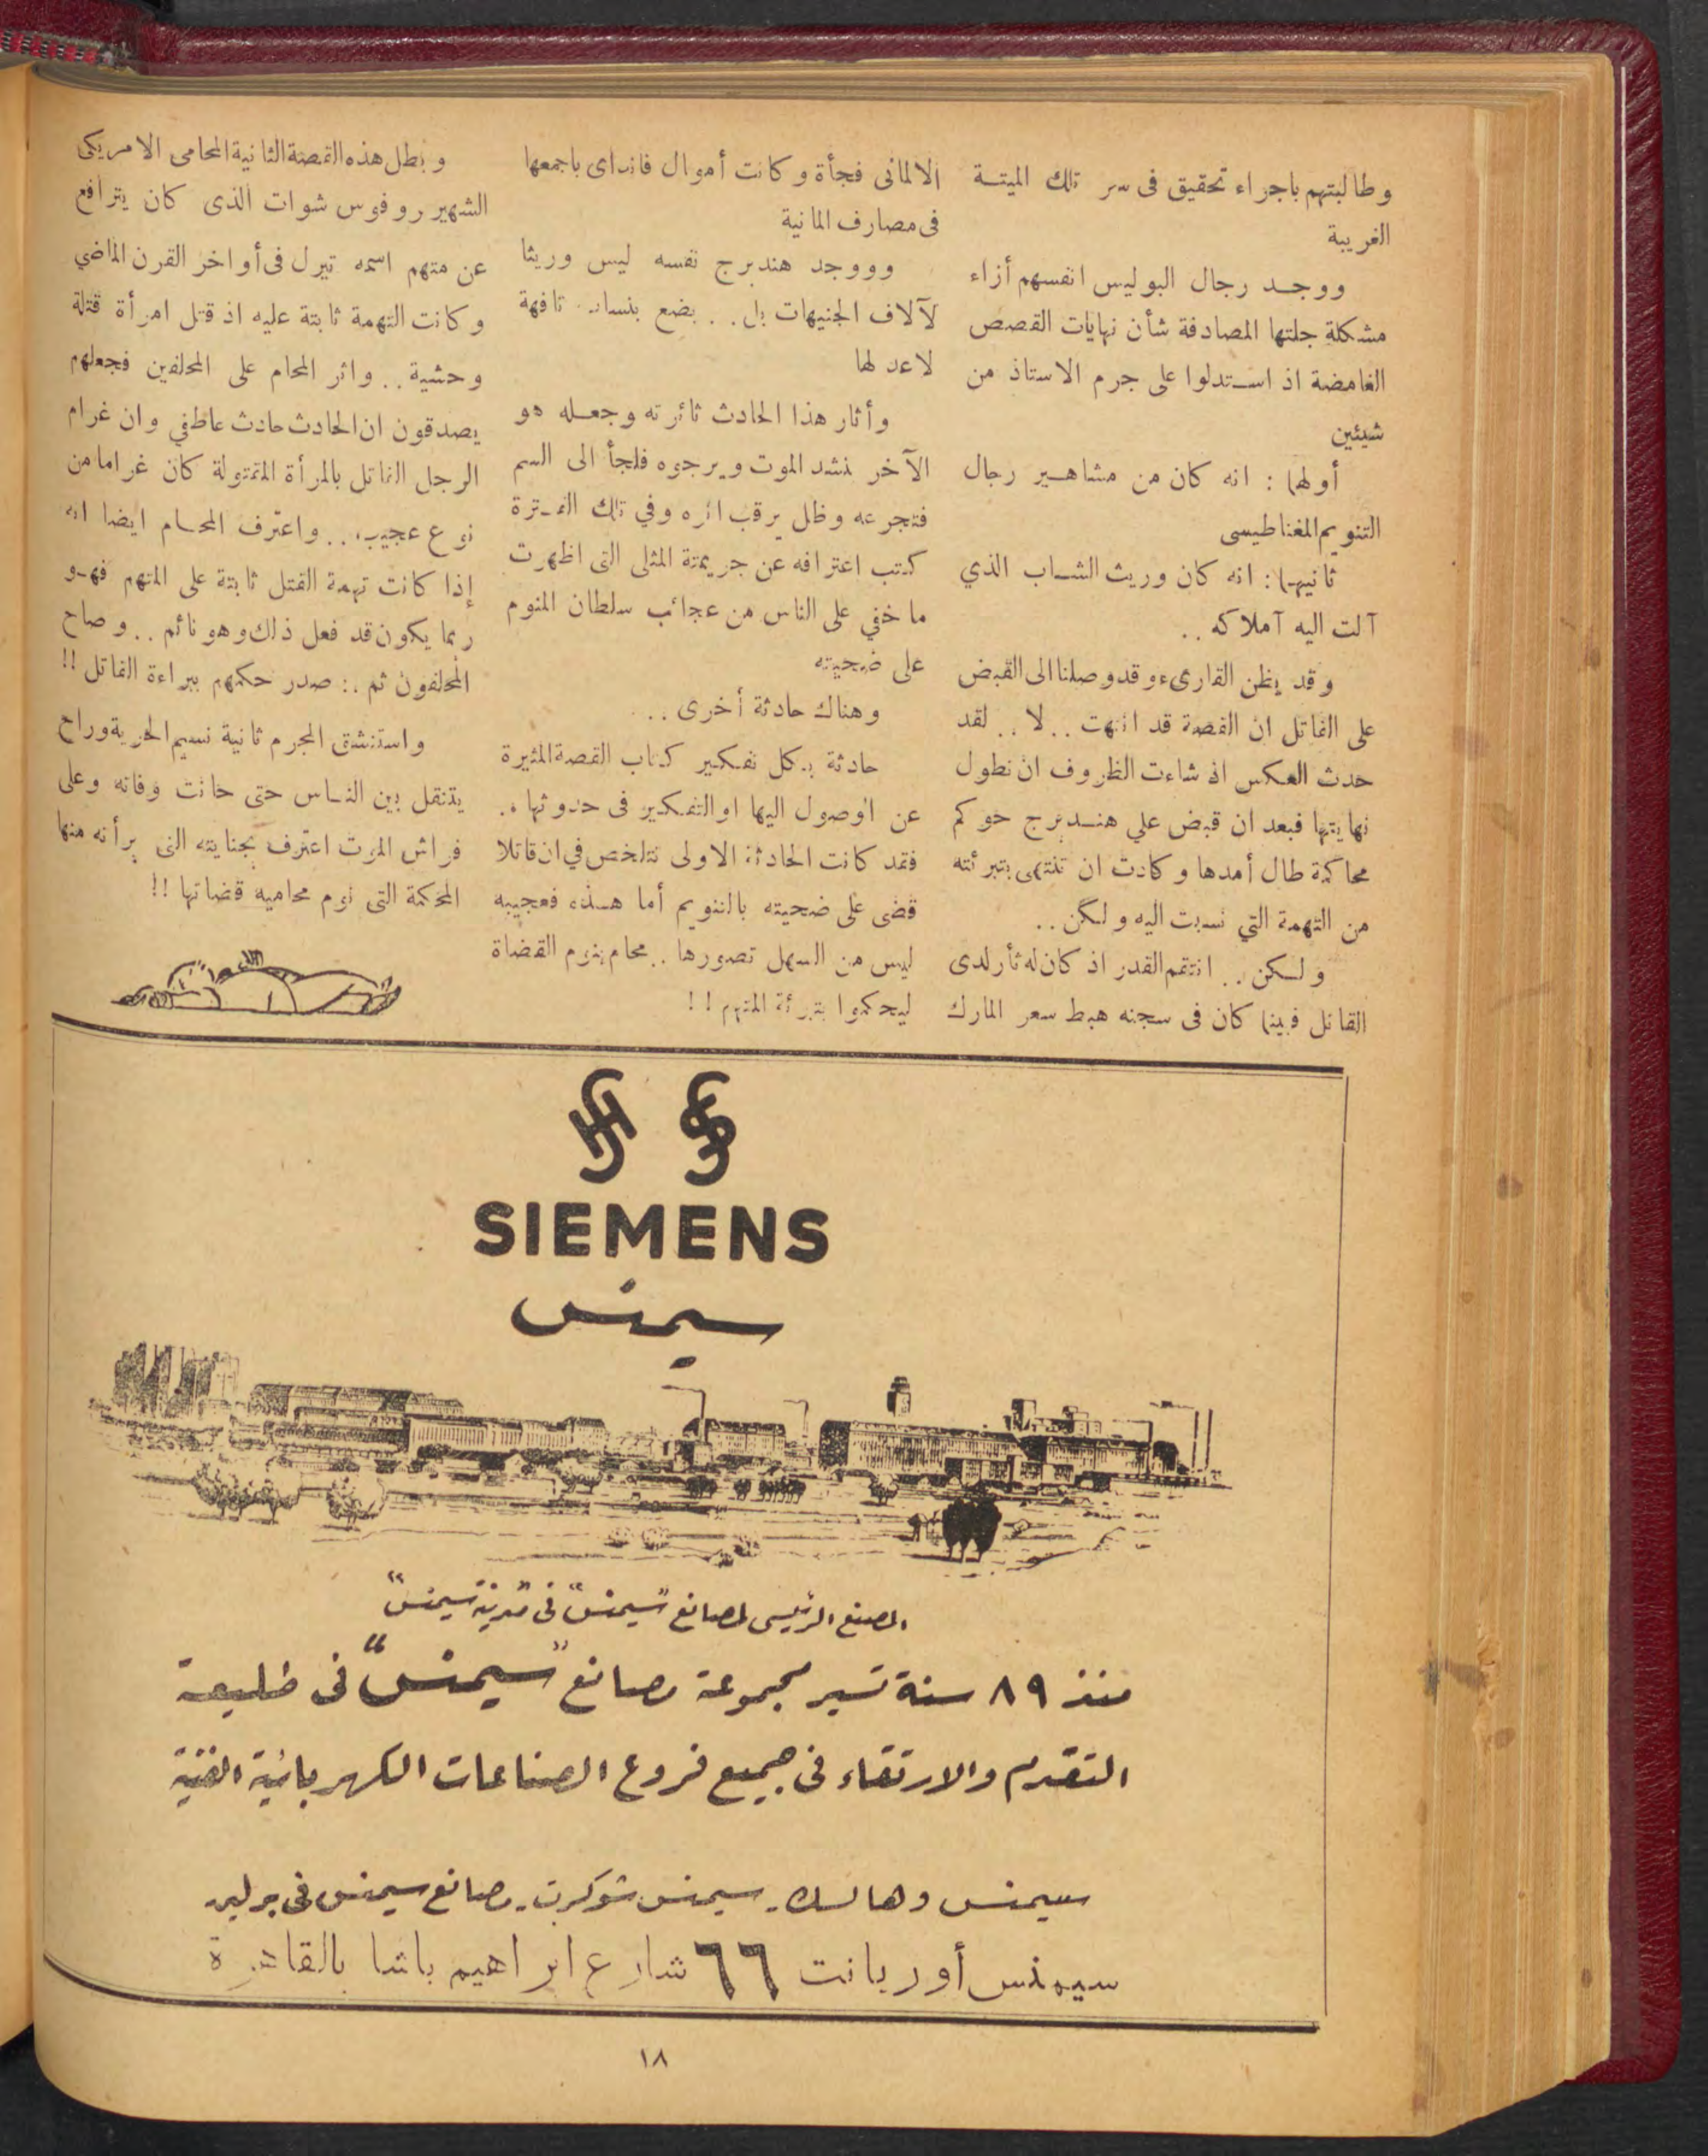 وطالبتهم باجراء تحقيق فى سر تلك الميتة
الغريبة
ووجد رجال البوليس انفسهم أزاء
مشكلة جلتها المصادفة شأن نهايات القصص
الغامضة اذ استدلوا على جرم الاستاذ من
شيئين
أولهما : انه كان من مشاهير رجال
التنويم المغناطيسى
ثانيهما : انه كان وريث الشاب الذي
آلت اليه آملاكه . .
وقد يظن القارىء وقد وصلنا الى القبض
على القاتل ان القصة قد انتهت . . لا . . لقد
حدث العكس اذ شاءت الظروف ان تطول
نهايتها فبعد ان قبض علي هندبرج حوكم
محاكمة طال أمدها وكادت ان تنتهى بتبرئته
من التهمة التي نسبت اليه ولكن . .
ولكن . . انتقم القدر اذ كان له ثأر لدى
القاتل فبينما كان فى سجنه هبط سعر المارك
الالمانى فجأة وكانت أموال فانداى باجمعها
فى مصارف المانية
وووجد هندبرج نفسه ليس وريثا
لآلاف الجنيهات بل . . بضع بنسات تافهة
لاعد لها
وأثار هذا الحادث ثائرته وجعله هو
الآخر ينشد الموت ويرجوه فلجأ الى السم
فتجرعه وظل يرقب اثره وفي تلك الفترة
كتب اعترافه عن جريمتة المثلى التى اظهرت
ما خفي على الناس من عجائب سلطان المنوم
على ضحيته
وهناك حادثة أخرى . .
حادثة يكل تفكير كتاب القصة المثيرة
عن الوصول اليها او التفكير فى حدوثها . .
فقد كانت الحادثة الاولى تتلخص في ان قاتلا
قضى على ضحيته بالتنويم أما هذه فعجيبه
ليس من السهل تصورها . . محام ينوم القضاة
ليحكموا بتبرئة المتهم ! !
وبطل هذه القصة الثانية المحامى الامريكى
الشهير روفوس شوات الذى كان يترافع
عن متهم اسمه تيرل فى أواخر القرن الماضي
وكانت التهمة ثابتة عليه اذ قتل امرأة قتلة
وحشية . . واثر المحام على المحلفين فجعلهم
يصدقون ان الحادث حادث عاطفي وان غرام
الرجل القاتل بالمرأة المقتولة كان غراما من
نوع عجيب . . واعترف المحام ايضا انه
إذا كانت تهمة القتل ثابتة على المتهم فهو
ربما يكون قد فعل ذلك وهو نائم . . وصاح
المحلفون ثم . : صدر حكمهم ببراءة القاتل ! !
واستنشق المجرم ثانية نسيم الحرية وراح
يتنقل بين الناس حتى حانت وفاته وعلى
فراش الموت اعترف بجنايته التى برأته منها
المحكمة التى نوم محاميه قضاتها ! !
SIEMENS
سيمنس
المصنع الرئيسى لمصانع "سيمنس" فى مدينة سيمنس"
منذ ٨٩ سنة تسير مجموعة مصانع "سيمنس" فى طليعة
التقدم والارتقاء فى جميع فروع الصناعات الكهربائية الفنية
سيمنس وهالسك . سيمنس شوكرت . مصانع سيمنس فى برلين
سيمنس أوريانت ٦٦ شارع ابراهيم باشا بالقاهرة
١٨